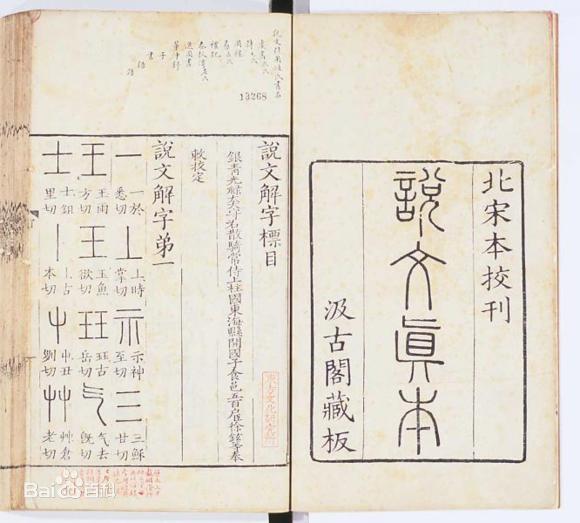 北宋本挍刊
說文眞本
汲古閣藏板
13268
說文解字標目
銀青光祿大夫守右散騎常侍上柱國東海縣開國子食邑五百戶臣徐鉉等奉
敕挍定
說文解字弟一
一 一於悉切
丄 丄時掌切
示 示神至切
三 三穌甘切
王 王雨方切
王 玉魚欲切
玨 玨古岳切
气 气去旣切
士 士鉏里切
丨 丨古本切
屮 屮丑列切
艸 艸倉老切
Bai百科